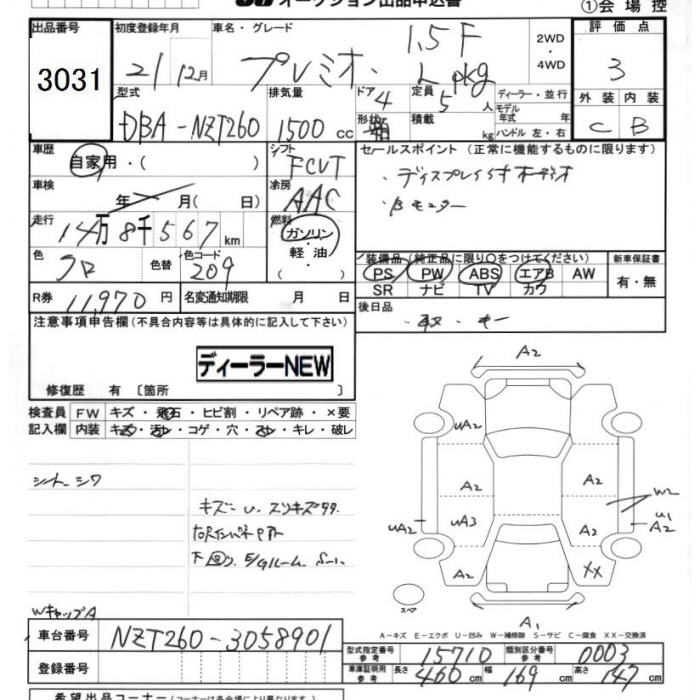 オークション出品申込書
①会場控
出品番号 初度登録年月 車名・グレード 評価点
3031 21/12月 プレミオ. 1.5F Lpkg 2WD・4WD 3
型式 排気量 ドア 定員 ディーラー・並行
DBA-NZT260 1500cc 4 5人 モデル年式 年
形状 積載 kg ハンドル 左・右
外装 内装
C B
車歴 自家用・( ) シフト FCVT
セールスポイント (正常に機能するものに限ります)
・ディスプレイ付オーディオ
・Bモニター
車検 年 月( 日) 冷房 AAC
走行 14万8千567km 燃料 ガソリン・軽油
色 クロ 色替 色コード 209
装備品(純正品に限り○をつけてください) 新車保証書
PS PW ABS エアB AW 有・無
SR ナビ TV カワ
R券 11,970円 名変通知期限 月 日
後日品
注意事項申告欄(不具合内容等は具体的に記入して下さい)
ディーラーNEW
修復歴 有 〔箇所 〕
検査員 FW キズ・飛石・ヒビ割・リペア跡・×要
記入欄 内装 キズ・汚れ・コゲ・穴・スレ・キレ・破レ
シート シワ
WキャップA
A2
uA2
A2 A2
W2
uA2 uA3 A2 u1 A2
A2 XX
スペア
A1
A-キズ E-エクボ U-凹み W-補修跡 S-サビ C-腐食 XX-交換済
車台番号 NZT260-3058901
登録番号
型式指定番号 参考 15710 類別区分番号 参考 0003
車庫証明用 参考 長さ 460cm 幅 169cm 高さ 147cm
希望出品コーナー